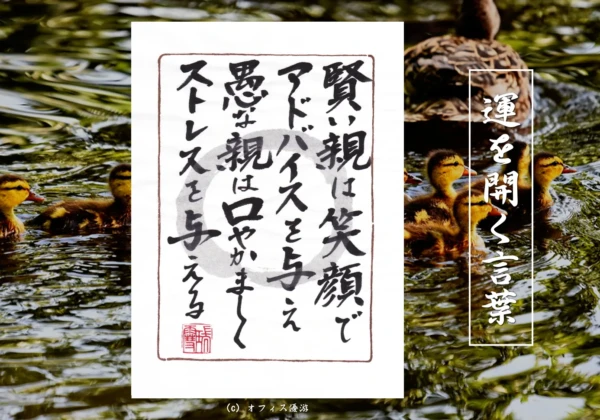 運を開く言葉
賢い親は笑顔で
アドバイスを与え
愚な親は口やかましく
ストレスを与える
(C) オフィス優游